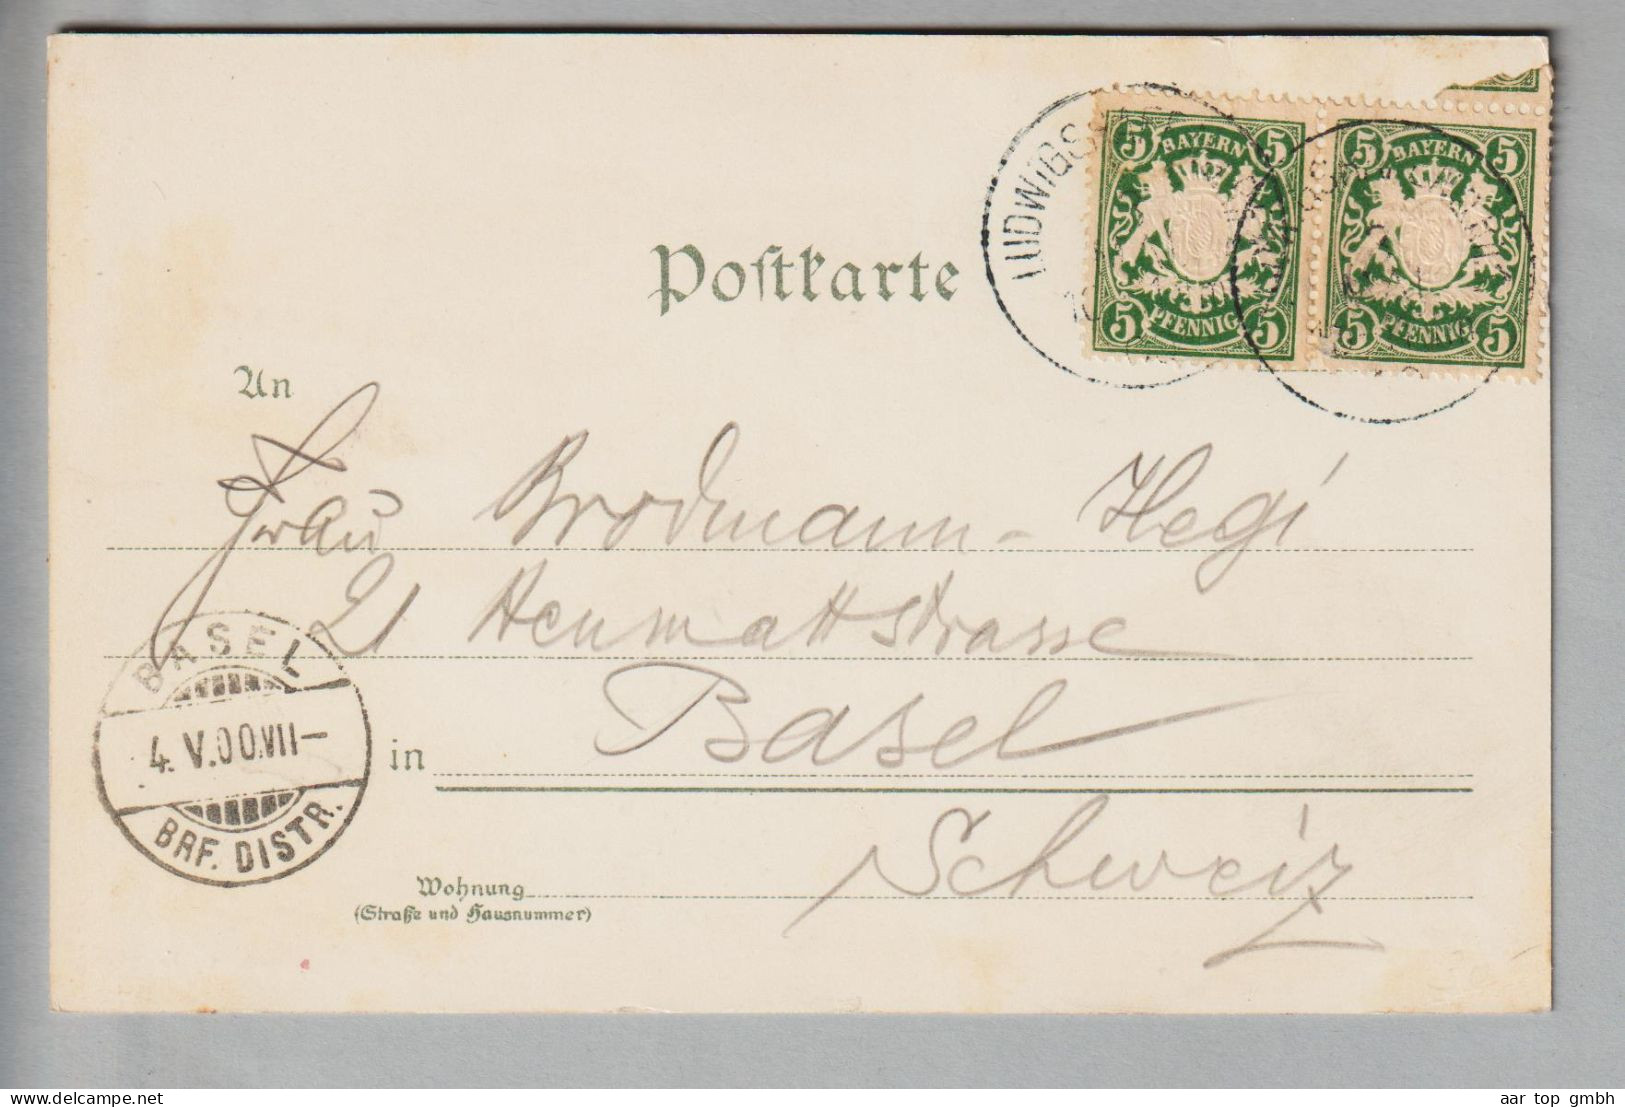 Postkarte
5 BAYERN 5
5 PFENNIG 5
5 BAYERN 5
5 PFENNIG 5
An
Frau Brodmann-Hegi
21 Heumattstrasse
in Basel
Schweiz
BASEL
4.V.00.VII-
BRF. DISTR.
Wohnung
(Straße und Hausnummer)
www.delcampe.net
aar top gmbh